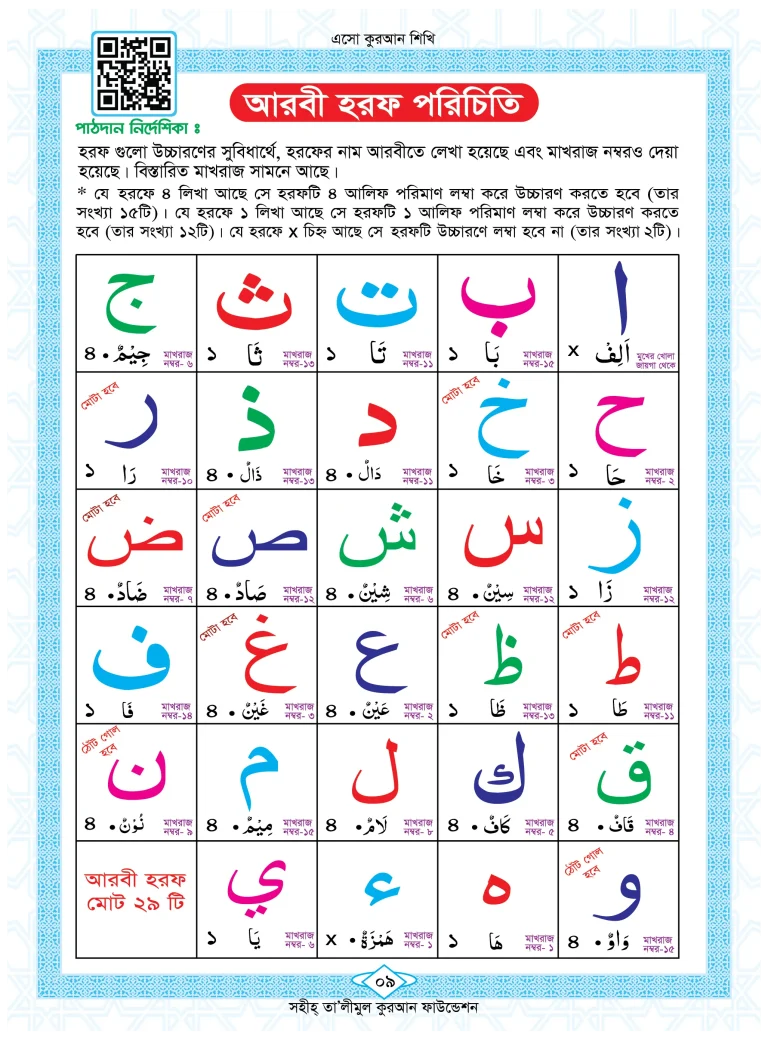 এসো কুরআন শিখি
আরবী হরফ পরিচিতি
পাঠদান নির্দেশিকা ঃ
হরফ গুলো উচ্চারণের সুবিধার্থে, হরফের নাম আরবীতে লেখা হয়েছে এবং মাখরাজ নম্বরও দেয়া
হয়েছে। বিস্তারিত মাখরাজ সামনে আছে।
* যে হরফে ৪ লিখা আছে সে হরফটি ৪ আলিফ পরিমাণ লম্বা করে উচ্চারণ করতে হবে (তার
সংখ্যা ১৫টি)। যে হরফে ১ লিখা আছে সে হরফটি ১ আলিফ পরিমাণ লম্বা করে উচ্চারণ করতে
হবে (তার সংখ্যা ১২টি)। যে হরফে x চিহ্ন আছে সে হরফটি উচ্চারণে লম্বা হবে না (তার সংখ্যা ২টি)।
ا
x اَلِفْ মুখের খোলা
জায়গা থেকে
ب
১ بَا মাখরাজ
নম্বর-১৫
ت
১ تَا মাখরাজ
নম্বর-১১
ث
১ ثَا মাখরাজ
নম্বর-১৩
ج
৪ جِيْمْ মাখরাজ
নম্বর- ৬
ح
১ حَا মাখরাজ
নম্বর- ২
মোটা হবে
خ
১ خَا মাখরাজ
নম্বর- ৩
د
৪ دَالْ মাখরাজ
নম্বর-১১
ذ
৪ ذَالْ মাখরাজ
নম্বর-১৩
মোটা হবে
ر
১ رَا মাখরাজ
নম্বর-১০
ز
১ زَا মাখরাজ
নম্বর-১২
س
৪ سِيْنْ মাখরাজ
নম্বর-১২
ش
৪ شِيْنْ মাখরাজ
নম্বর- ৬
মোটা হবে
ص
৪ صَادْ মাখরাজ
নম্বর-১২
মোটা হবে
ض
৪ ضَادْ মাখরাজ
নম্বর- ৭
মোটা হবে
ط
১ طَا মাখরাজ
নম্বর-১১
মোটা হবে
ظ
১ ظَا মাখরাজ
নম্বর-১৩
ع
৪ عَيْنْ মাখরাজ
নম্বর- ২
মোটা হবে
غ
৪ غَيْنْ মাখরাজ
নম্বর- ৩
ف
১ فَا মাখরাজ
নম্বর-১৪
মোটা হবে
ق
৪ قَافْ মাখরাজ
নম্বর- ৪
ك
৪ كَافْ মাখরাজ
নম্বর- ৫
ل
৪ لَامْ মাখরাজ
নম্বর- ৮
م
৪ مِيْمْ মাখরাজ
নম্বর-১৫
ঠোঁট গোল
হবে
ن
৪ نُوْنْ মাখরাজ
নম্বর- ৯
ঠোঁট গোল
হবে
و
৪ وَاوْ মাখরাজ
নম্বর-১৫
ه
১ هَا মাখরাজ
নম্বর- ১
ء
x هَمْزَةْ মাখরাজ
নম্বর- ১
ي
১ يَا মাখরাজ
নম্বর- ৬
আরবী হরফ
মোট ২৯ টি
০৯
সহীহ্ তা'লীমুল কুরআন ফাউন্ডেশন